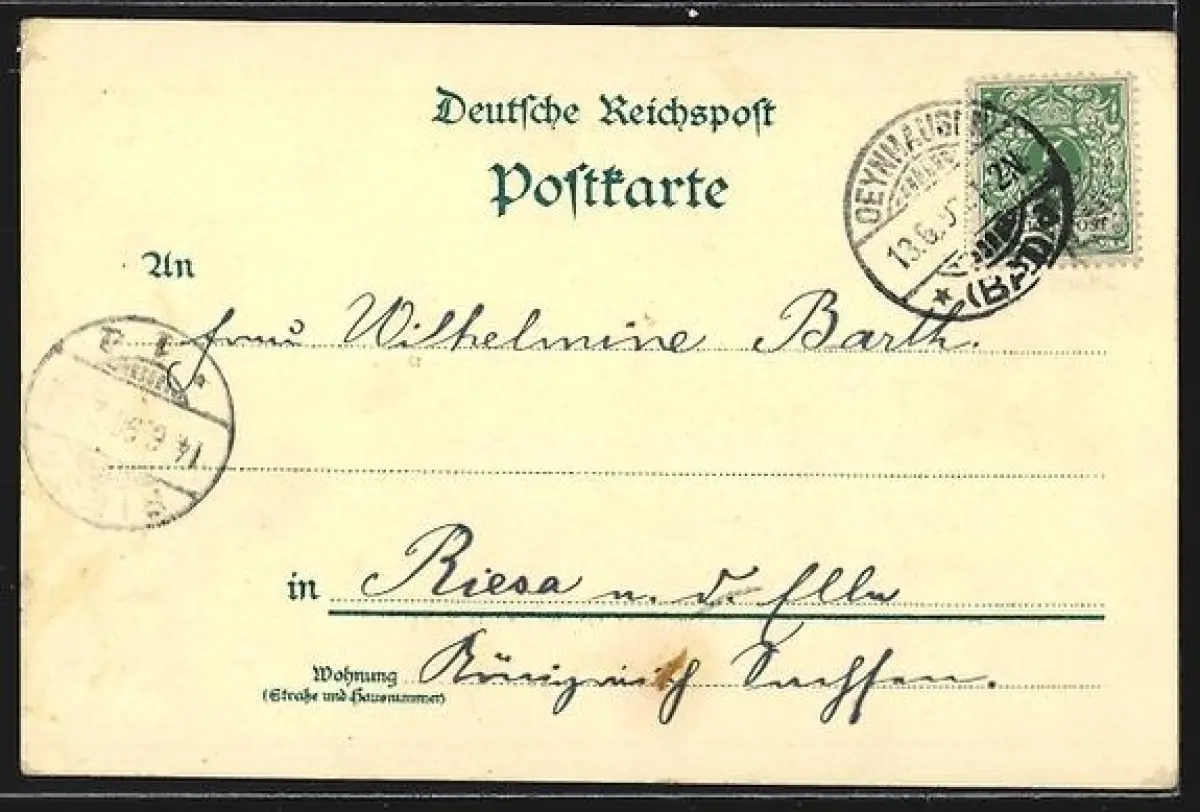 Deutsche Reichspost
Postkarte
OEYNHAUSEN
13.6.
1-2N
* (BAD)
An
Frau Wilhelmine Barth.
14.6.
in Riesa a. d. Elbe
Wohnung Königreich Sachsen.
(Straße und Hausnummer)